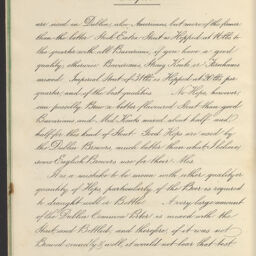 are used in Dublin, also Americans, but more of the former
than the latter. Stock Extra Stout is Hopped at 16 lbs to
the quarter with all Bavarians, if you have a good
quality, otherwise Bavarians, Strong Kents or Farnhams
mixed. Imperial Stout of 31 lbs is Hopped at 20 lbs per
quarter, and of the best qualities. No Hops however,
can possibly Brew a better flavoured Stout than good
Bavarians and Mid Kents mixed about half and
half for this kind of Stout. Good Hops are used by
the Dublin Brewers, much better than what I believe,
some English Brewers use for their Ales.
It is a mistake to be mean with either quality or
quantity of Hops particularly if the Beer is required
to draught well in Bottle. A very large amount
of the Dublin Common Porter is mixed with the
Stout and Bottled, and therefore, if it was not
Brewed soundly & well, it would not bear that test